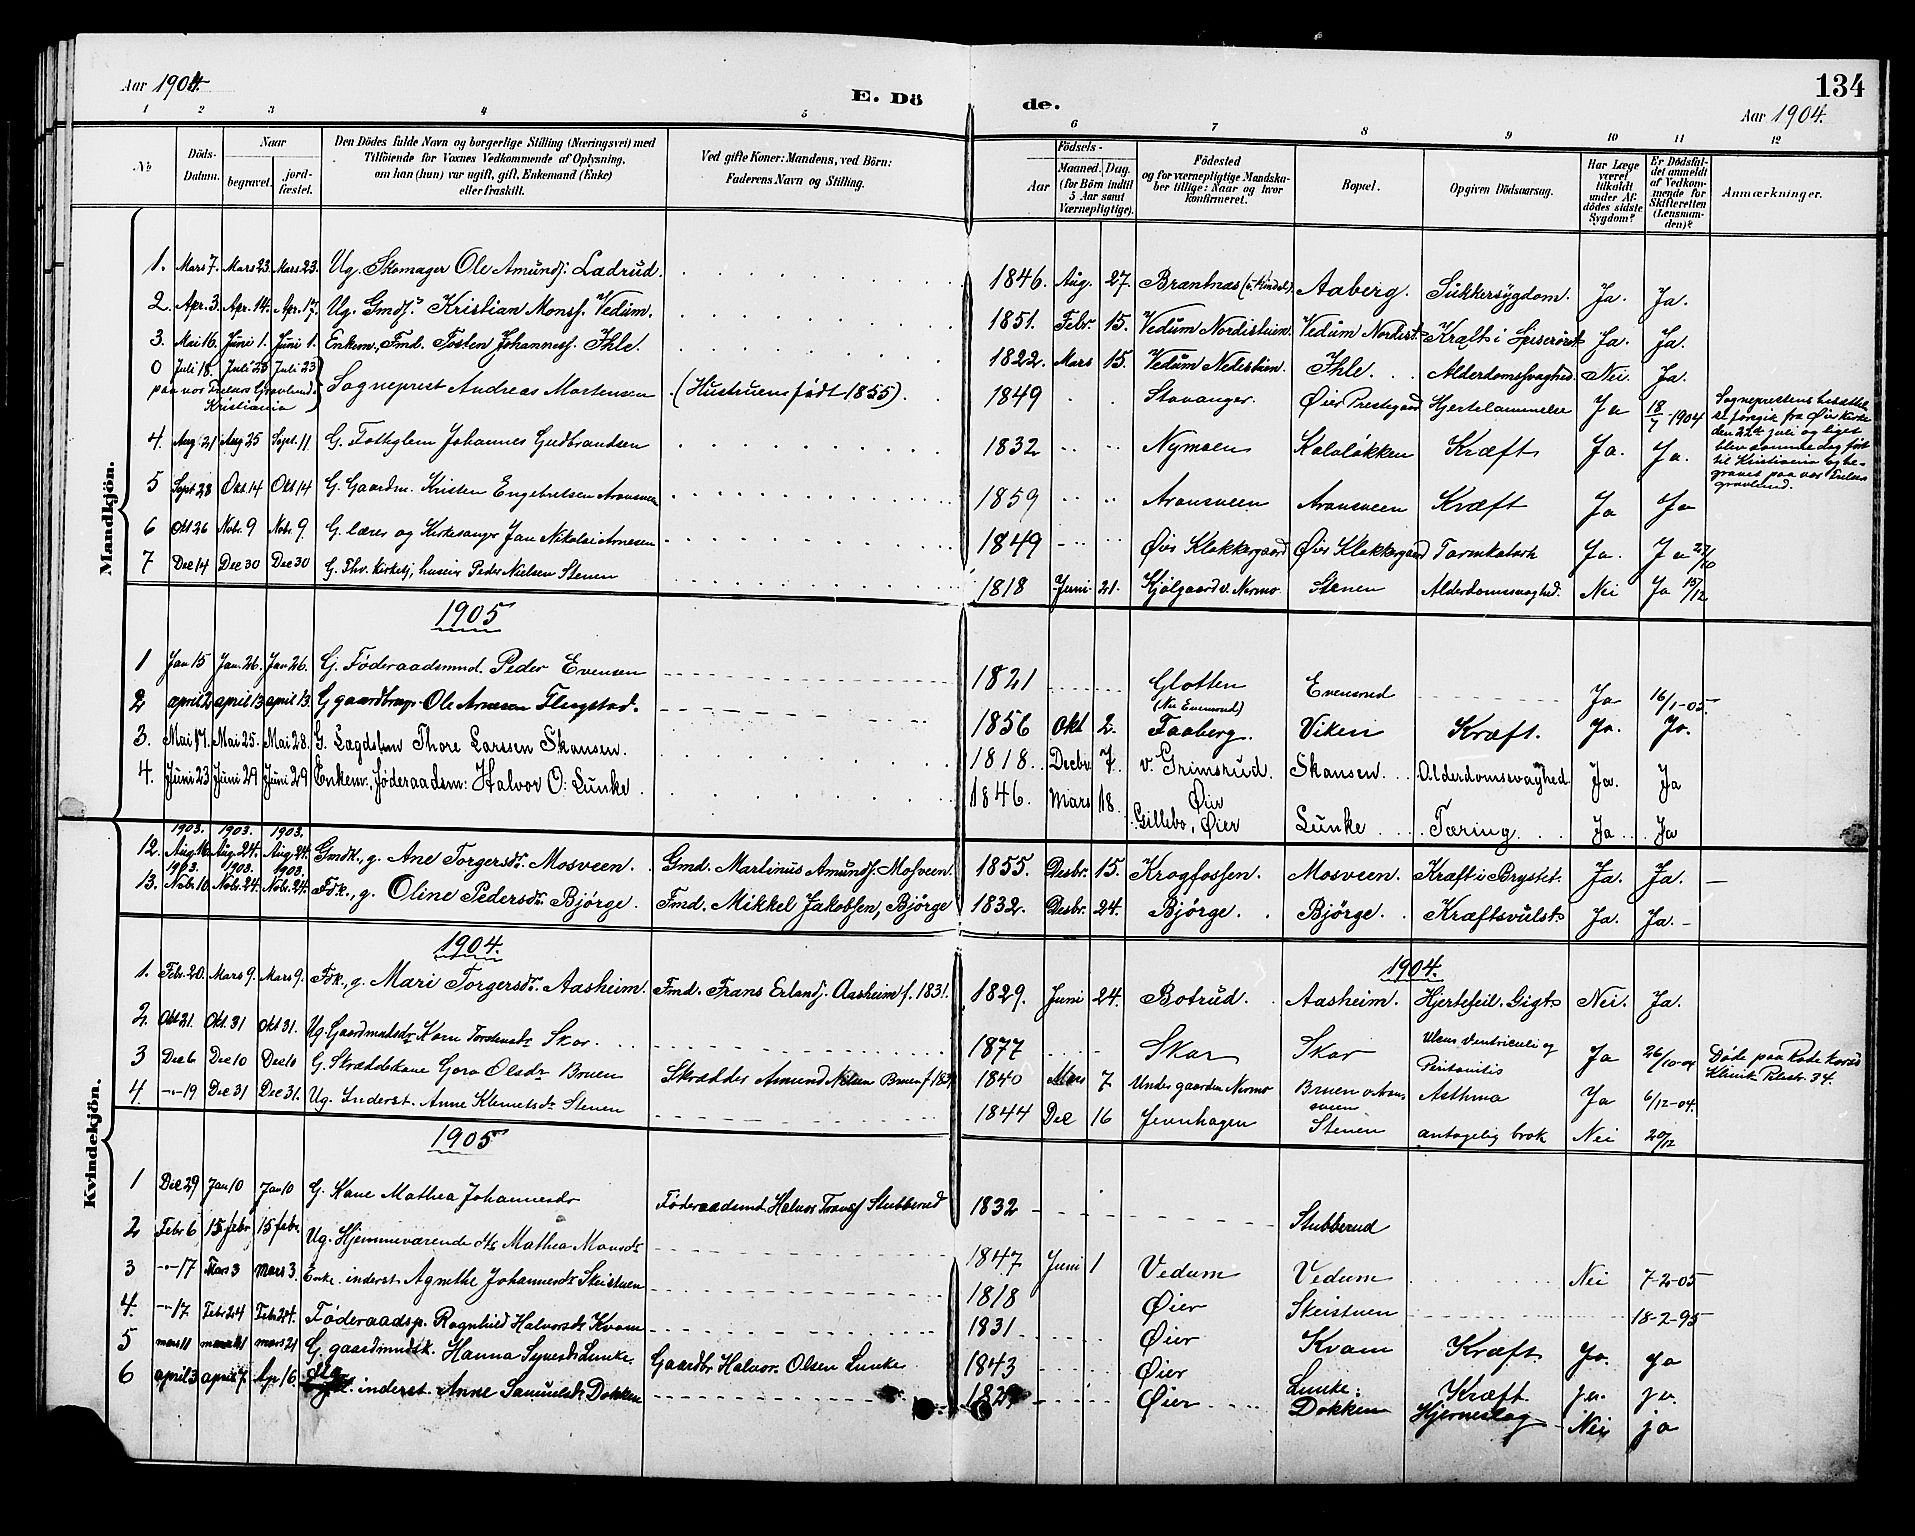 Aar 1904.
E. Dö
de.
134
Aar 1904.
1 2 3 4 5 6 7 8 9 10 11 12
No
Döds-Datum.
Naar
begravet.
jordfæstet.
Den Dödes fulde Navn og borgerlige Stilling (Næringsvei) med
Tilföiende for Voxnes Vedkommende af Oplysning,
om han (hun) var ugift, gift, Enkemand (Enke)
eller fraskilt.
Ved gifte Koner: Mandens, ved Börn:
Faderens Navn og Stilling.
Födsels-
Aar
Maaned. Dag.
(for Börn indtil
5 Aar samt
Værnepligtige).
Födested
og for værnepligtige Mandskaber tillige: Naar og hvor
konfirmeret.
Bopæl.
Opgiven Dödsaarsag.
Har Læge
været
tilkaldt
under Afdödes sidste
Sygdom?
Er Dödsfaldet anmeldt
af Vedkommende for
Skifteretten
(Lensmanden)?
Anmærkninger.
Mandkjön.
1. Mars 7. Mars 23. Mars 23. Ug. Skomager Ole Amundj: Ladrud. 1846. Aug. 27. Brantnæs Aaberg. Sukkersygdom. Ja. Ja.
2. Apr. 3. Apr. 14. Apr. 17. Ug. Gmdj. Kristian Monsf. Vedum. 1851. Febr. 15. Vedum Nordistuen. Vedum Nordist. Kræft i Spiserøret Ja. Ja.
3. Mai 16. Juni 1. Juni 1. Enkem., Fmd. Tosten Johannesf. Ihle. 1822. Mars 15. Vedum Nedistuen. Ihle. Alderdomssvaghed. Nei. Ja.
0 Juli 18. Juli 23 Juli 23
paa vor Frelsers Gravlund
Kristiania
Sogneprest Andreas Mortensen (Hustruen født 1855). 1849 Stavanger. Øier Prestegaard Hjertelammelse Ja 18/7-1904
Sogneprestens
foregik fra Øier Kirke
den 22de juli og liget
blev samme dag ført
til Kristiania og begraves paa vor Frelsers
gravlund.
4 Aug 21 Aug 25 Sept. 11 G. Fattiglem Johannes Gudbrandsen 1832 Nymoen Kalaløkken Kræft Ja. Ja.
5 Sept 28 Okt 14 Okt 14 G. Gaardm. Kristen Engebretsen Aronsveen 1859 Aronsveen Aronsveen Kræft Ja Ja
6 Okt 26 Nobr. 9 Nobr. 9 G. lærer og Kirkesanger Jan Nikolai Arnesen 1849 Øier Klokkergaard Øier Klokkergaard Tarmkatarh Ja. Ja 27/10
7 Dec 14 Dec 30 Dec 30 G. Fhv. Kirketj, huseier Peder Nielsen Stenen 1818 Juni 21. Kjølgaard v. Nermo Stenen Alderdomssvaghed. Nei Ja 15/12
1905
1 Jan 15 Jan. 26. Jan 26. G. Føderaadsmnd. Peder Evensen 1821 Glotten
(Nu Evensrud) Evensrud Ja 16/1-05.
2 april 2 april 13 april 13. G gaardbrug. Ole Arnesen Flugstad. 1856 Okt 2. Faaberg. Viken Kræft. Ja. Ja.
3. Mai 17. Mai 25. Mai 28. G. Lægdslem Thore Larssen Skansen. 1818. Decbr 7. v. Grimsrud. Øier Skansen. Alderdomsvaghed Ja. Ja
4. Juni 23 Juni 29 Juni 29 Enkem., føderaadsm: Halvor O: Lunke. 1846. Mars 18. Gillebo, Øier Lunke Tæring. Ja Ja
Kvindekjön.
12. 1903. Aug. 16. 1903. Aug. 24. 1903. Aug. 24. Gmdk., g. Ane Torgersdr. Mosveen. Gmd. Martinus Amundf. Mosveen. 1855. Desbr. 15. Krogfossen. Mosveen. Kræft i Brystet. Ja. Ja. —
13. 1903. Nobr. 10. 1903. Nobr. 24. 1903. Nobr. 24. Fdk., g. Oline Pedersdr. Bjørge. Fmd. Mikkel Jakobsen, Bjørge 1832. Desbr. 24. Bjørge. Bjørge. Kræftsvulst. Ja. Ja. —
1904.
1904.
1. Febr. 20. Mars 9. Mars 9. Fdk., g. Mari Torgersdr. Aasheim. Fmd. Frans Erlandj. Aasheim f. 1831. 1829. Juni 24. Botrud. Aasheim. Hjertefeil. Gigt. Nei. Ja.
2. Okt 21. Okt. 31 Okt 31. Ug. Gaardmandsdr Karn Torstensdr Skar. 1877 Skar Skar Ulcus ventriculi og
Peritonitis Ja 26/10-04 Døde paa Røde kors's
Klinik Pilestr. 34.
3 Dec 6 Dec 10 Dec 10 G. Skrædderkone Goro Olsdr Bruen Skrædder Amund Nilsen Bruen 1840 Mars 7 Under gaarden Nermo Bruen v. Aronsveen Asthma Ja 6/12-04.
4 -"-19 Dec 31 Dec 31. Ug. Inderst. Anne Klemetsdr Stenen 1844 Dec 16 Jevnhagen Stenen antagelig brok Nei 20/12
1905
1 Dec 29 Jan 10 Jan 10 G. Kone Mathea Johannesdr Føderaadsmnd Halvor Stubberud 1832 Stubberud
2 Febr 6 15 febr 15 febr. Ug. Hjemmeværende dtr Mathea Monsdr 1847 Juni 1 Vedum Vedum Nei 7-2-05
3 -"-17 Mars 3 Mars 3. Enke. inderst Agnethe Johannesdr Skeistuen 1818 Øier Skeistuen 18-2-95
4. -"-17. Febr 24 Febr 24. Føderaadsp. Ragnhild Halvorsdr Kvam 1831 Øier Kvam Kræft. Ja. Ja
5 mars 11 mars 21 mars 21 G. gaardmndsk. Hanna Syversdr Lunke. Gaardbr Halvor Olsen Lunke 1843 Øier Lunke. Kræft ja. ja.
6 april 3 april 7. Ap 16. inderst. Anne Samuelsdr Dokken Øier Dokken Hjerneslag Nei ja